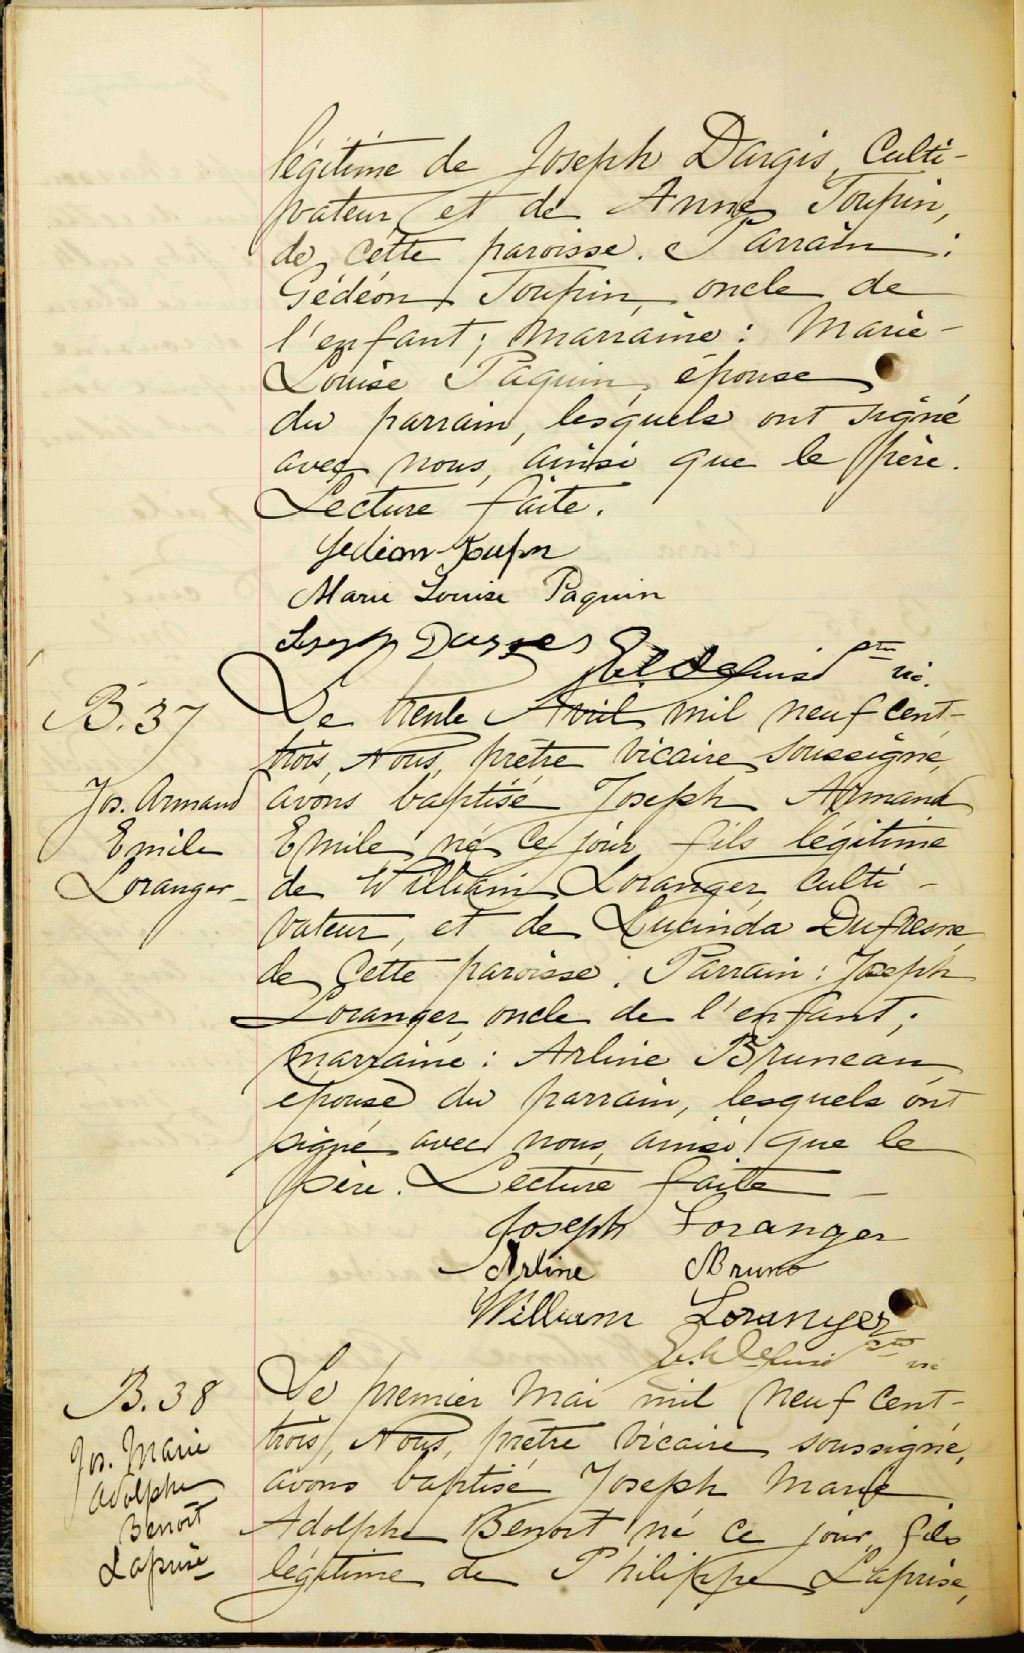 légitime de Joseph Dargis, Culti-
vateur, et de Anne Toupin,
de cette paroisse. Parrain :
Gédéon Toupin, oncle de
l'enfant; Marraine : Marie-
Louise Paquin, épouse
du parrain, lesquels ont signé
avec nous, ainsi que le père.
Lecture faite.
Gedeon Toupin
Marie Louise Paquin
Joseph
ptre vic.
B. 37
Jos. Armand
Emile
Loranger
Le trente Avril mil neuf cent-
trois, Nous, prêtre vicaire soussigné,
avons baptisé Joseph Armand
Emile né ce jour fils légitime
de William Loranger, culti-
vateur, et de Lucinda Dufresne,
de cette paroisse. Parrain : Joseph
Loranger, oncle de l'enfant ;
marraine : Arline Bruneau
épouse du parrain, lesquels ont
signé avec nous, ainsi que le
père. Lecture faite —
Joseph Loranger
Arline Bruno
William Loranger
ptre vic
B. 38
Jos. Marie
Adolphe
Benoit
Laprise
Le premier Mai mil neuf cent-
trois, Nous, prêtre vicaire soussigné,
avons baptisé Joseph Marie
Adolphe Benoit né ce jour, fils
légitime de Philippe Laprise,